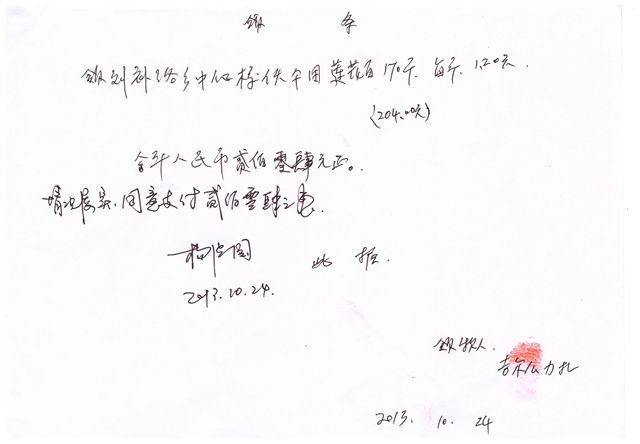 领 条
领到补洛乡中心校伙午用莲花白170斤. 每斤. 1.20元.
(204.00元)
合计人民币贰佰零肆元正。
情况属实,同意支付贰佰零肆元
此 据.
2013.10.24.
领款人.
吉尔么力扎
2013. 10. 24